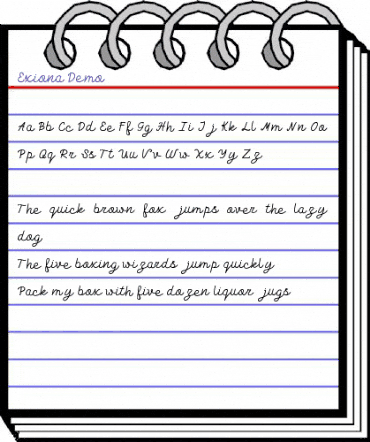 Exiona Demo
Aa Bb Cc Dd Ee Ff Gg Hh Ii Jj Kk Ll Mm Nn Oo
Pp Qq Rr Ss Tt Uu Vv Ww Xx Yy Zz
The quick brown fox jumps over the lazy
dog
The five boxing wizards jump quickly
Pack my box with five dozen liquor jugs